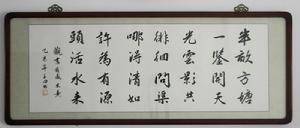 半畝方塘
一鑒開天
光雲影共
徘徊問渠
哪得清如
許為有源
頭活水来
觀書有感